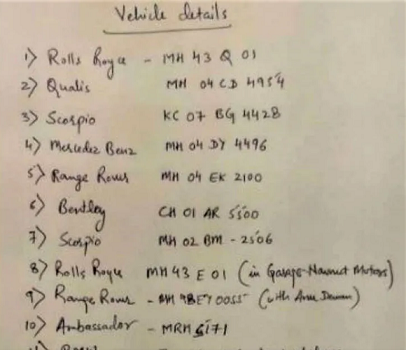 Vehicle details
1) Rolls Royce - MH 43 Q 01
2) Qualis MH 04 CD 4954
3) Scorpio KC 07 BG 4428
4) Mercedez Benz MH 04 DY 4496
5) Range Rover MH 04 EK 2100
6) Bentley CH 01 AR 5500
7) Scorpio MH 02 BM - 2506
8) Rolls Royce MH 43 E 01 (in Garage-Navnit Motors)
9) Range Rover - (with
10) Ambassador - MRH 5171